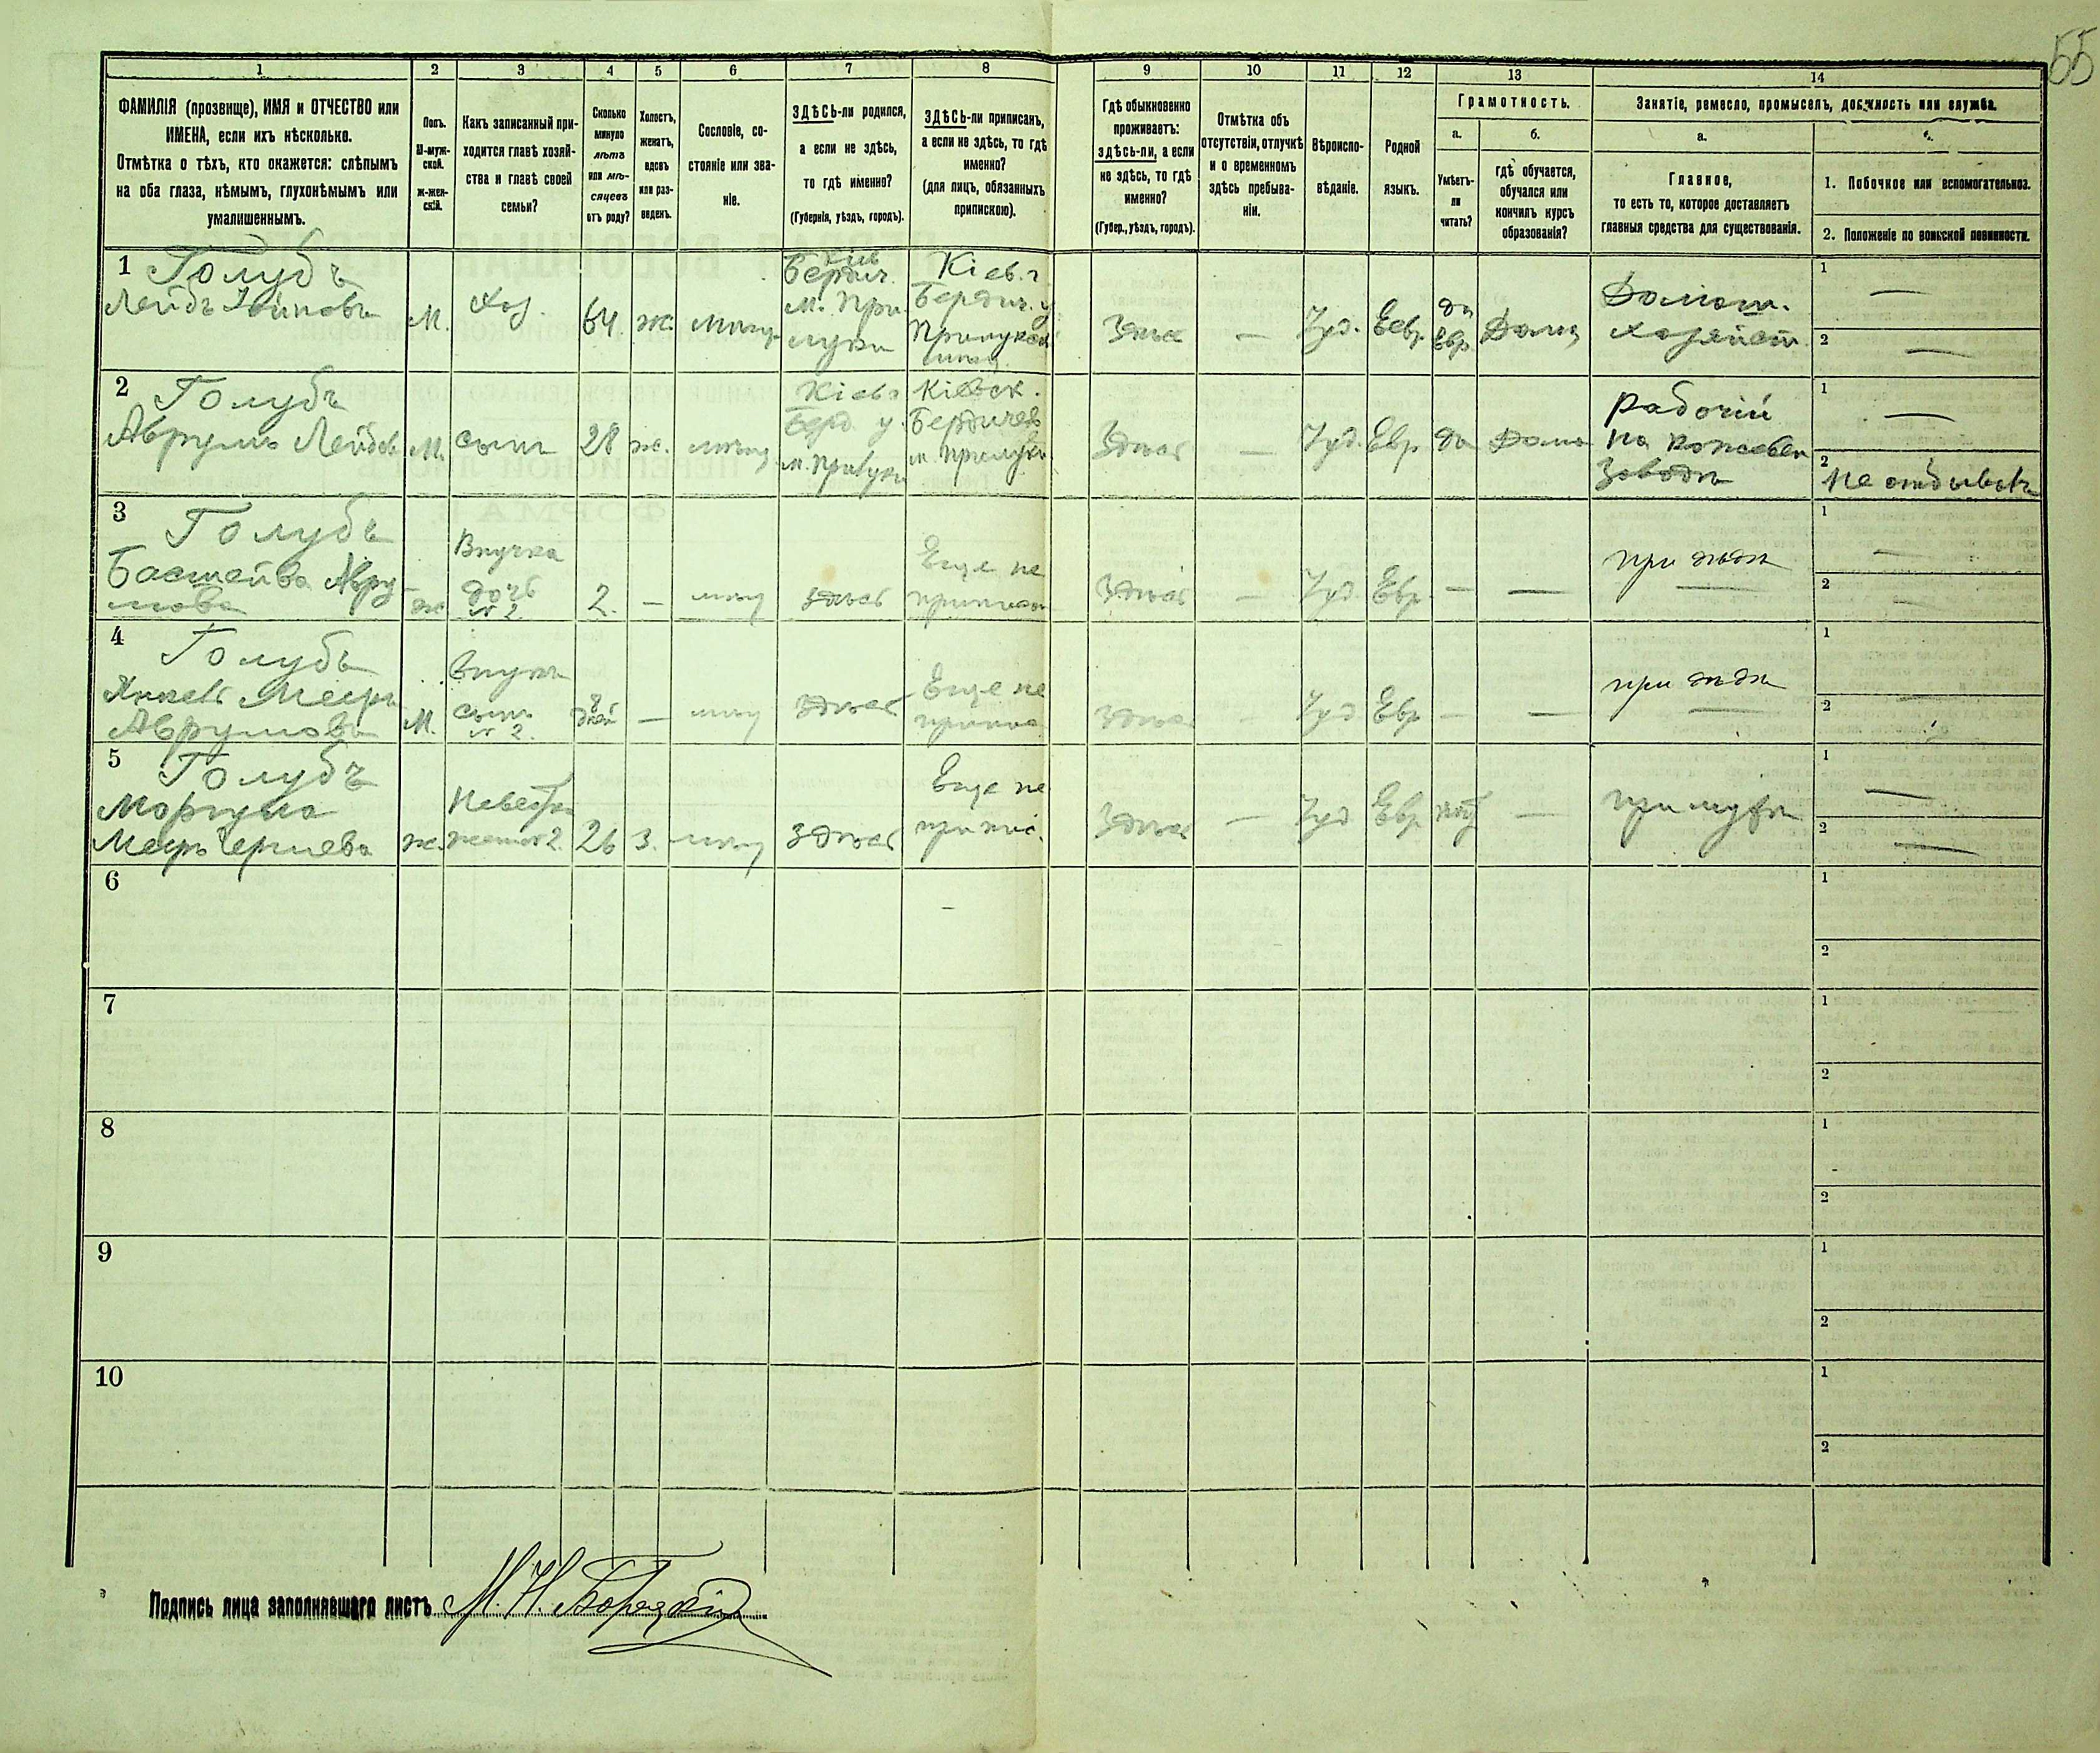 55
1 2 3 4 5 6 7 8 9 10 11 12 13 14
ФАМИЛІЯ (прозвище), ИМЯ и ОТЧЕСТВО или
ИМЕНА, если ихъ нѣсколько.
Отмѣтка о тѣхъ, кто окажется: слѣпымъ
на оба глаза, нѣмымъ, глухонѣмымъ или
умалишеннымъ.
Полъ.
М-муж-
ской.
ж-жен-
скій.
Какъ записанный при-
ходится главѣ хозяй-
ства и главѣ своей
семьи?
Сколько
минуло
лѣтъ
или мѣ-
сяцевъ
отъ роду?
Холостъ,
женатъ,
вдовъ
или раз-
веденъ.
Сословіе, со-
стояніе или зва-
ніе.
ЗДѢСЬ-ли родился,
а если не здѣсь,
то гдѣ именно?
(Губернія, уѣздъ, городъ).
ЗДѢСЬ-ли приписанъ,
а если не здѣсь, то гдѣ
именно?
(для лицъ, обязанныхъ
припискою).
Гдѣ обыкновенно
проживаетъ:
здѣсь-ли, а если
не здѣсь, то гдѣ
именно?
(Губер., уѣздъ, городъ).
Отмѣтка объ
отсутствіи, отлучкѣ
и о временномъ
здѣсь пребыва-
ніи.
Вѣроиспо-
вѣданіе.
Родной
языкъ.
Грамотность.
а.
Умѣетъ-
ли
читать?
б.
гдѣ обучается,
обучался или
кончилъ курсъ
образованія?
Занятіе, ремесло, промыселъ, должность или служба.
а.
Главное,
то есть то, которое доставляетъ
главныя средства для существованія.
1. Побочное или вспомогательное.
2. Положеніе по воинской повинности.
1 Голубъ
Лейдъ
М.
Хоз.
64
ж.
Кіев
Бердич.
м. При-
луки
Кіев. г
Бердич. у
Здѣсь
—
Іуд.
Евр.
да
Евр.
Дома
Домаш.
хозяйст.
1 —
2 —
2 Голубъ
Аврумъ Лейдов
М.
сынъ
28
ж.
Кіев г
Берд. у.
м. Прилуки
Кіевск.
Бердичев
м. Прилуки
Здѣсь
—
Іуд.
Евр
да
Дома
Рабочій
на кожевен
заводѣ
1 —
2 Не отбывалъ
3 Голубъ
Басшейва Авру-
мова
ж
Внучка
дочь
№ 2
2.
—
здѣсь
Еще не
приписан
Здѣсь
—
Іуд.
Евр.
—
—
при дѣдѣ
1 —
2 —
4 Голубъ
Янкель Меер
Аврумовъ
М.
внукъ
сынъ
№ 2.
дней
—
здѣсь
Еще не
припис
здѣсь
—
Іуд
Евр
—
—
при дѣдѣ
1
2 —
5 Голубъ
ж.
Невестка
жена № 2.
26
З.
здѣсь
Еще не
припис.
Здѣсь
—
Іуд
Евр
нѣт
—
при мужѣ
1 —
2 —
6 1
2
7 1
2
8 1
2
9 1
2
10 1
2
Подпись лица заполнявшаго листъ